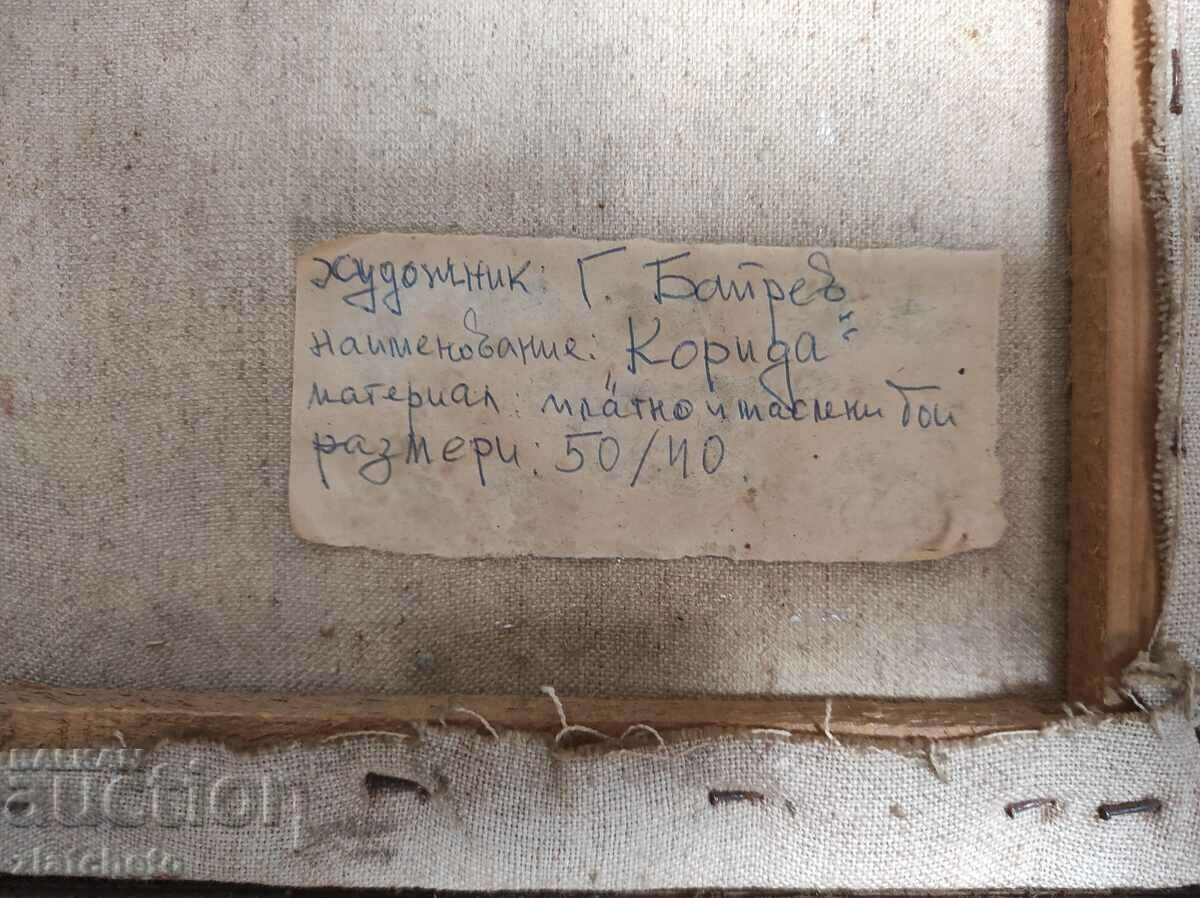 художник: Г. Батрев
наименование: „Корида“
материал: платно и маслени бои
размери: 50/40
BALKAN
auction
zlatchoto